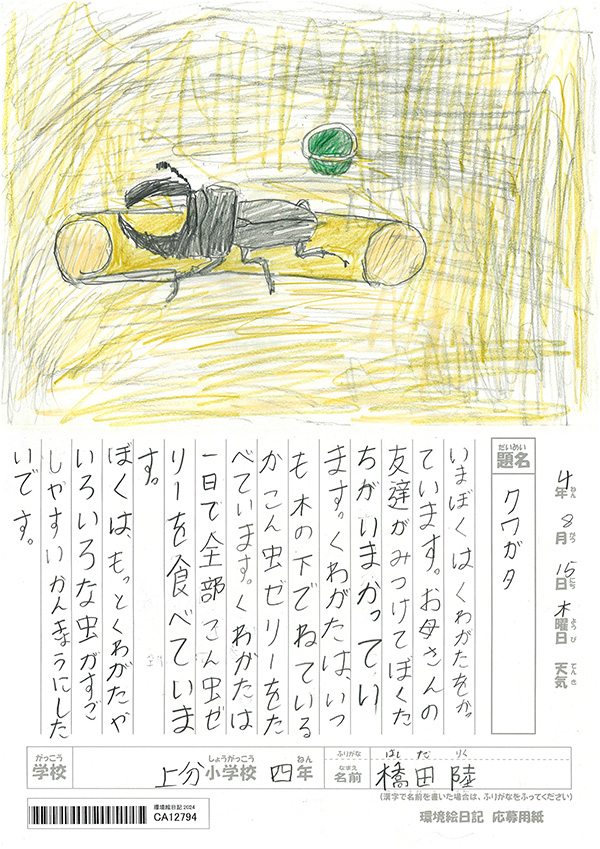 4年 8月 15日 木曜日 天気
ねん がつ にち よう び てん き
だいめい
題名 クワガタ
いまぼくはくわがたをかっ
ています。お母さんの
友達がみつけてぼくた
ちがいまかってい
ます。くわがたは、いつ
も木の下でねている
かこん虫ゼリーをた
べています。くわがたは
一日で全部こん虫ゼ
リーを食べていま
す。
ぼくは、もっとくわがたや
いろいろな虫がすご
しやすいかんきょうにした
いです。
がっこう しょうがっこう ねん
学校 上分小学校 四年
ふりがな はし だ りく
なまえ
名前 橋田 陸
(漢字で名前を書いた場合は、ふりがなをふってください)
環境絵日記2024
CA12794
環境絵日記 応募用紙